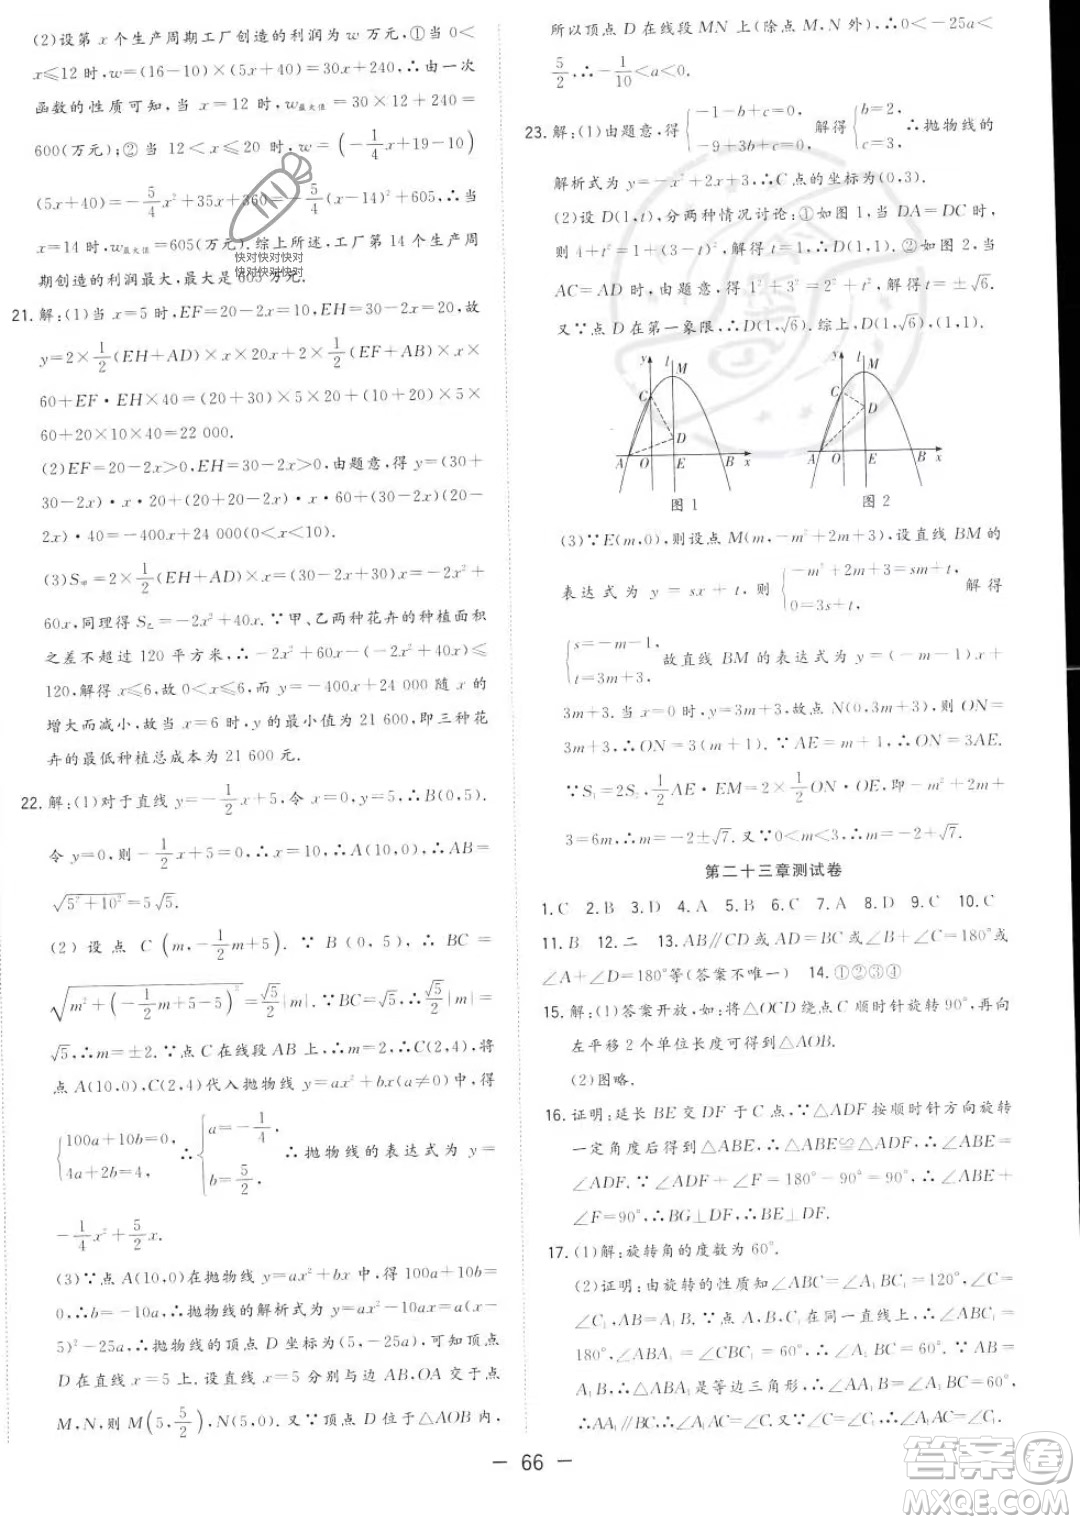 (2)设第 x 个生产周期工厂创造的利润为 w 万元,①当 0<
x≤12 时,w=(16-10)×(5x+40)=30x+240,∴由一次
函数的性质可知,当 x=12 时,w最大值=30×12+240=
600(万元);②当 12<x≤20 时,w=(-1/4x+19-10)
(5x+40)=-5/4x²+35x+360=-5/4(x-14)²+605,∴当
x=14 时,w最大值=605(万元).综上所述,工厂第 14 个生产周
期创造的利润最大,最大是 605 万元.
快对快对快对
快对快对快对
21. 解:(1)当 x=5 时,EF=20-2x=10,EH=30-2x=20,故
y=2×1/2(EH+AD)×20x+2×1/2(EF+AB)×x×
60+EF·EH×40=(20+30)×5×20+(10+20)×5×
60+20×10×40=22 000.
(2)EF=20-2x>0,EH=30-2x>0,由题意,得 y=(30+
30-2x)·x·20+(20+20-2x)·x·60+(30-2x)·(20-
2x)·40=-400x+24 000(0<x<10).
(3)S甲=2×1/2(EH+AD)×x=(30-2x+30)x=-2x²+
60x,同理得 S乙=-2x²+40x.∵甲、乙两种花卉的种植面积
之差不超过 120 平方米,∴-2x²+60x-(-2x²+40x)≤
120,解得 x≤6,故 0<x≤6,而 y=-400x+24 000 随 x 的
增大而减小,故当 x=6 时,y 的最小值为 21 600,即三种花
卉的最低种植总成本为 21 600 元.
22. 解:(1)对于直线 y=-1/2x+5,令 x=0,y=5,∴B(0,5).
令 y=0,则-1/2x+5=0,∴x=10,∴A(10,0),∴AB=
√(5²+10²)=5√5.
(2)设点 C(m,-1/2m+5).∵B(0,5),∴BC=
√(m²+(-1/2m+5-5)²)=√5/2|m|.∵BC=√5,∴√5/2|m|=
√5,∴m=±2.∵点 C 在线段 AB 上,∴m=2,∴C(2,4),将
点 A(10,0),C(2,4)代入抛物线 y=ax²+bx(a≠0)中,得
{100a+10b=0, 4a+2b=4, ∴{a=-1/4, b=5/2, ∴抛物线的表达式为 y=
-1/4x²+5/2x.
(3)∵点 A(10,0)在抛物线 y=ax²+bx 中,得 100a+10b=
0,∴b=-10a,∴抛物线的解析式为 y=ax²-10ax=a(x-
5)²-25a,∴抛物线的顶点 D 坐标为(5,-25a),可知顶点
D 在直线 x=5 上.设直线 x=5 与边 AB,OA 交于点
M,N,则 M(5,5/2),N(5,0).又∵顶点 D 位于△AOB 内,
所以顶点 D 在线段 MN 上(除点 M,N 外),∴0<-25a<
5/2,∴-1/10<a<0.
23. 解:(1)由题意,得{-1-b+c=0, -9+3b+c=0, 解得{b=2, c=3, ∴抛物线的
解析式为 y=-x²+2x+3,∴C 点的坐标为(0,3).
(2)设 D(1,t),分两种情况讨论:①如图 1,当 DA=DC 时,
则 4+t²=1+(3-t)²,解得 t=1,∴D(1,1).②如图 2,当
AC=AD 时,由题意,得 1²+3²=2²+t²,解得 t=±√6.
又∵点 D 在第一象限,∴D(1,√6).综上,D(1,√6),(1,1).
y l M C D A O E B x
图 1
y l M C D A O E B x
图 2
(3)∵E(m,0),则设点 M(m,-m²+2m+3),设直线 BM 的
表达式为 y=sx+t,则{-m²+2m+3=sm+t, 0=3s+t, 解得
{s=-m-1, t=3m+3, 故直线 BM 的表达式为 y=(-m-1)x+
3m+3.当 x=0 时,y=3m+3,故点 N(0,3m+3),则 ON=
3m+3,∴ON=3(m+1).∵AE=m+1,∴ON=3AE.
∵S₁=2S₂,1/2AE·EM=2×1/2×ON×m,∴-m²+2m+
3=6m,∴m=-2±√7.又∵0<m<3,∴m=-2+√7.
第二十三章测试卷
1.C 2.B 3.D 4.A 5.B 6.C 7.A 8.D 9.C 10.C
11.B 12.二 13.AB∥CD或AD=BC或∠B+∠C=180°或
∠A+∠D=180°等(答案不唯一) 14.①②③④
15. 解:(1)答案开放,如:将△OCD绕点C 顺时针旋转90°,再向
左平移 2 个单位长度可得到△AOB.
(2)图略.
16. 证明:延长 BE 交 DF 于 G 点,∵△ADF 按顺时针方向旋转
一定角度后得到△ABE,∴△ABE≌△ADF,∴∠ABE=
∠ADF.∵∠ADF+∠F=180°-90°=90°,∴∠ABE+
∠F=90°,∴BG⊥DF,∴BE⊥DF.
17. (1)解:旋转角的度数为 60°.
(2)证明:由旋转的性质知∠ABC=∠A₁BC₁=120°,∠C=
∠C₁,AB=A₁B.∵点 A,B,C₁ 在同一直线上,∴∠ABC₁=
180°,∴∠ABA₁=∠CBC₁=60°,∴∠A₁BC=60°.又∵AB=
A₁B,∴△ABA₁ 是等边三角形,∴∠AA₁B=∠A₁BC=60°,
∴AA₁∥BC,∴∠A₁AC=∠C,∴∠A₁AC=∠C₁.
— 66 —
答案圈
MXQE.COM